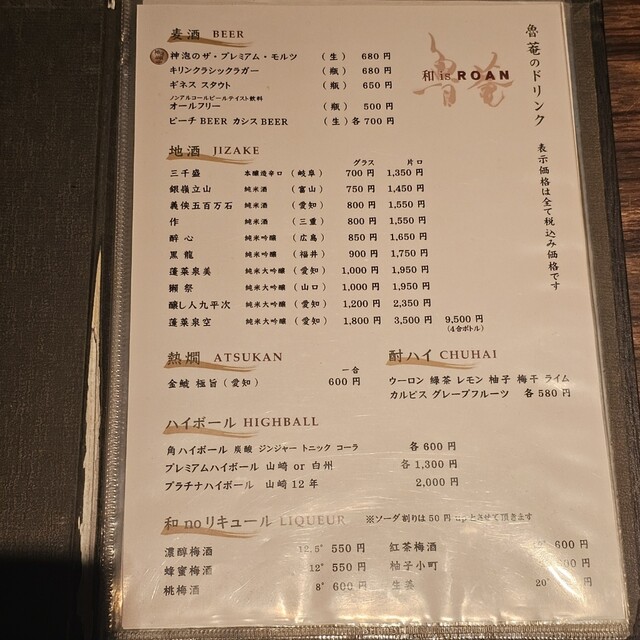 魯菴のドリンク
表示価格は全て税込み価格です
和 is ROAN
魯菴
麦酒 BEER
神泡のザ・プレミアム・モルツ (生) 680円
キリンクラシックラガー (瓶) 680円
ギネス スタウト (瓶) 650円
ノンアルコールビールテイスト飲料
オールフリー (瓶) 500円
ピーチBEER カシスBEER (生) 各700円
地酒 JIZAKE
グラス 片口
三千盛 本醸造辛口 (岐阜) 700円 1,350円
銀嶺立山 純米酒 (富山) 750円 1,450円
義侠五百万石 純米酒 (愛知) 800円 1,550円
作 純米酒 (三重) 800円 1,550円
酔心 純米吟醸 (広島) 850円 1,650円
黒龍 純米吟醸 (福井) 900円 1,750円
蓬莱泉美 純米大吟醸 (愛知) 1,000円 1,950円
獺祭 純米大吟醸 (山口) 1,000円 1,950円
醸し人九平次 純米大吟醸 (愛知) 1,200円 2,350円
蓬莱泉空 純米大吟醸 (愛知) 1,800円 3,500円 9,500円
(4合ボトル)
熱燗 ATSUKAN
一合
金鯱 極旨 (愛知) 600円
酎ハイ CHUHAI
ウーロン 緑茶 レモン 柚子 梅干 ライム
カルピス グレープフルーツ 各580円
ハイボール HIGHBALL
角ハイボール 炭酸 ジンジャー トニック コーラ 各600円
プレミアムハイボール 山崎 or 白州 各1,300円
プラチナハイボール 山崎12年 2,000円
和 no リキュール LIQUEUR ※ソーダ割りは50円upとさせて頂きます
濃醇梅酒 12.5° 550円
蜂蜜梅酒 12° 550円
桃梅酒 8° 600円
紅茶梅酒 600円
柚子小町 円
生姜 20° 円